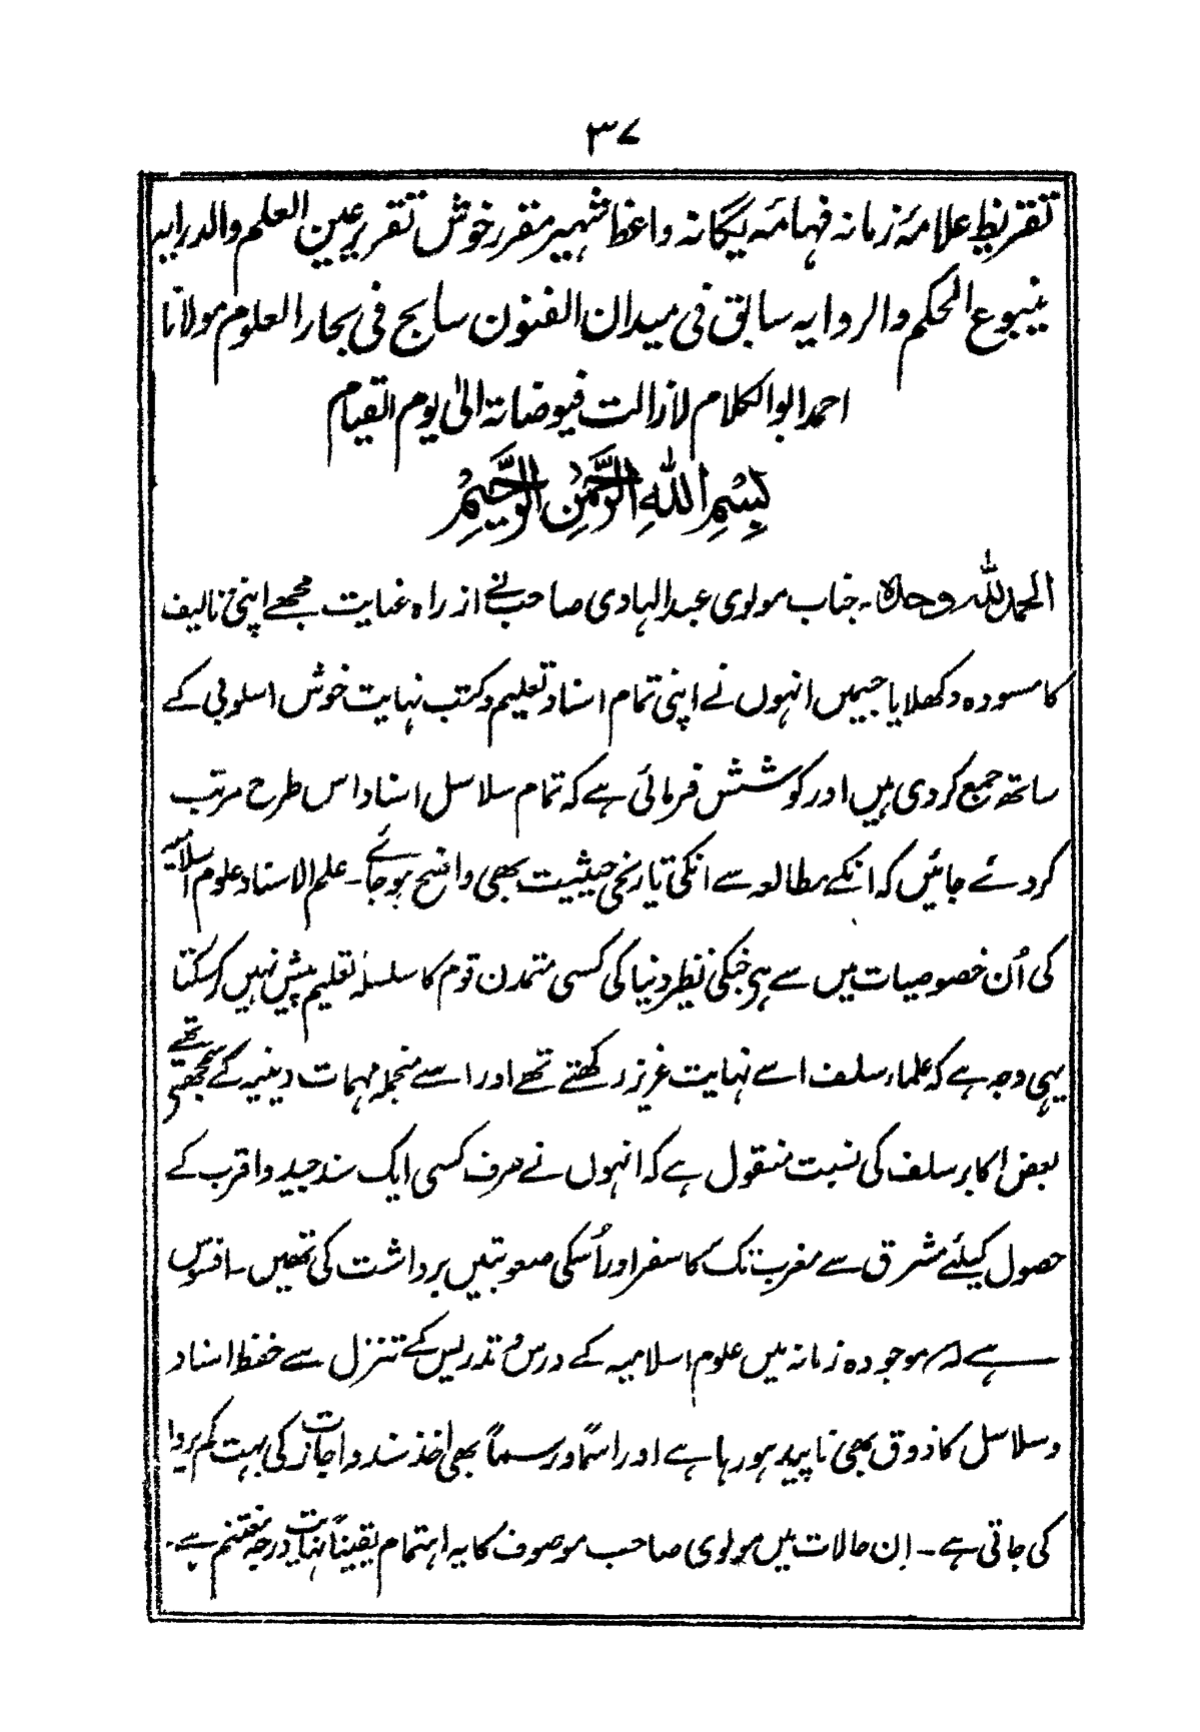 ۳۷
تقریظ علامۂ زمانہ فہامۂ یگانہ واعظ شہیر مقرر خوش تقریر عین العلم والدرایہ
ینبوع الحکم والروایہ سابق فی میدان الفنون سابح فی بحار العلوم مولانا
احمد ابوالکلام لازالت فیوضاتہ الیٰ یوم القیام
بِسْمِ اللهِ الرَّحْمٰنِ الرَّحِیْمِ
الحمدللہ وحدہ ۔ جناب مولوی عبدالہادی صاحب نے از راہ عنایت مجھے اپنی تالیف
کا مسودہ دکھلایا جسمیں انہوں نے اپنی تمام اسناد تعلیم و کتب نہایت خوش اسلوبی کے
ساتھ جمع کردی ہیں اور کوشش فرمائی ہے کہ تمام سلاسل اسناد اس طرح مرتب
کردئے جائیں کہ انکے مطالعہ سے انکی تاریخی حیثیت بھی واضح ہوجائے ۔ علم الاسناد علوم اسلامیہ
کی اُن خصوصیات میں سے ہی جنکی نظیر دنیا کی کسی متمدن قوم کا سلسلۂ تعلیم پیش نہیں کرسکتا
یہی وجہ ہے کہ علماء سلف اسے نہایت عزیز رکھتے تھے اور اسے منجملہ مہمات دینیہ کے سمجھتے تھے
بعض اکابر سلف کی نسبت منقول ہے کہ انہوں نے صرف کسی ایک سند جید و اقرب کے
حصول کیلئے مشرق سے مغرب تک کا سفر اور اُسکی صعوبتیں برداشت کی تھیں ۔ افسوس
ہے کہ موجودہ زمانہ میں علوم اسلامیہ کے درس و تدریس کے تنزل سے حفظ اسناد
و سلاسل کا ذوق بھی ناپید ہورہا ہے اور اسماً و رسماً بھی اخذ سند و اجازت کی بہت کم پروا
کی جاتی ہے ۔ اِن حالات میں مولوی صاحب موصوف کا یہ اہتمام یقیناً نہایت درجہ مغتنم ہے ۔